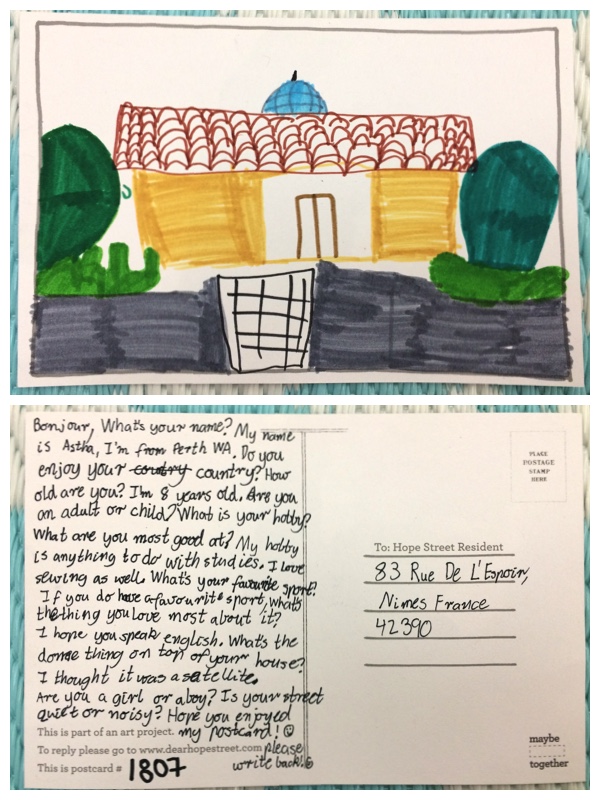 Bonjour, What's your name? My name
is Astha, I'm from Perth WA. Do you
enjoy your country? How
old are you? I'm 8 years old. Are you
an adult or child? What is your hobby?
What are you most good at? My hobby
is anything to do with studies. I love
sewing as well. What's your favourite sport?
If you do have a favourite sport, what's
the thing you love most about it?
I hope you speak english. What's the
dome thing on top of your house?
I thought it was a satellite.
Are you a girl or a boy? Is your street
quiet or noisy? Hope you enjoyed
my postcard!
please
write back!
This is part of an art project.
To reply please go to www.dearhopestreet.com
This is postcard # 1807
PLACE
POSTAGE
STAMP
HERE
To: Hope Street Resident
83 Rue De L'Espoir,
Nimes France
42390
maybe
together